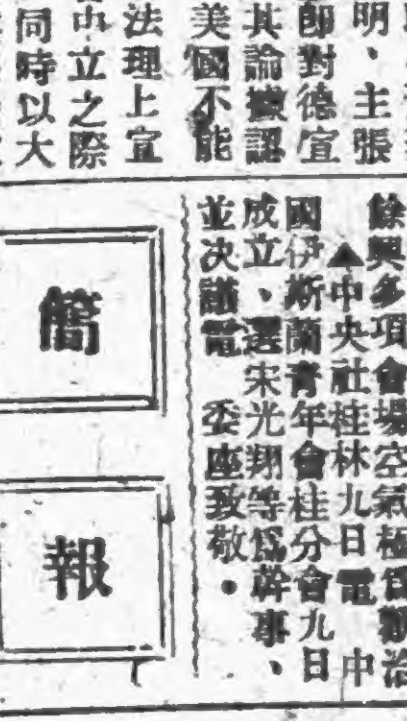 明、主張
即對德宣
其論據認
美國不能
法理上宣
中立之際
同時以大
餘興多項會場空氣極爲歡洽
▲中央社桂林九日電　中
國伊斯蘭青年會桂分會九日
成立、選宋光翔等爲幹事、
並决議電　委座致敬。
簡報